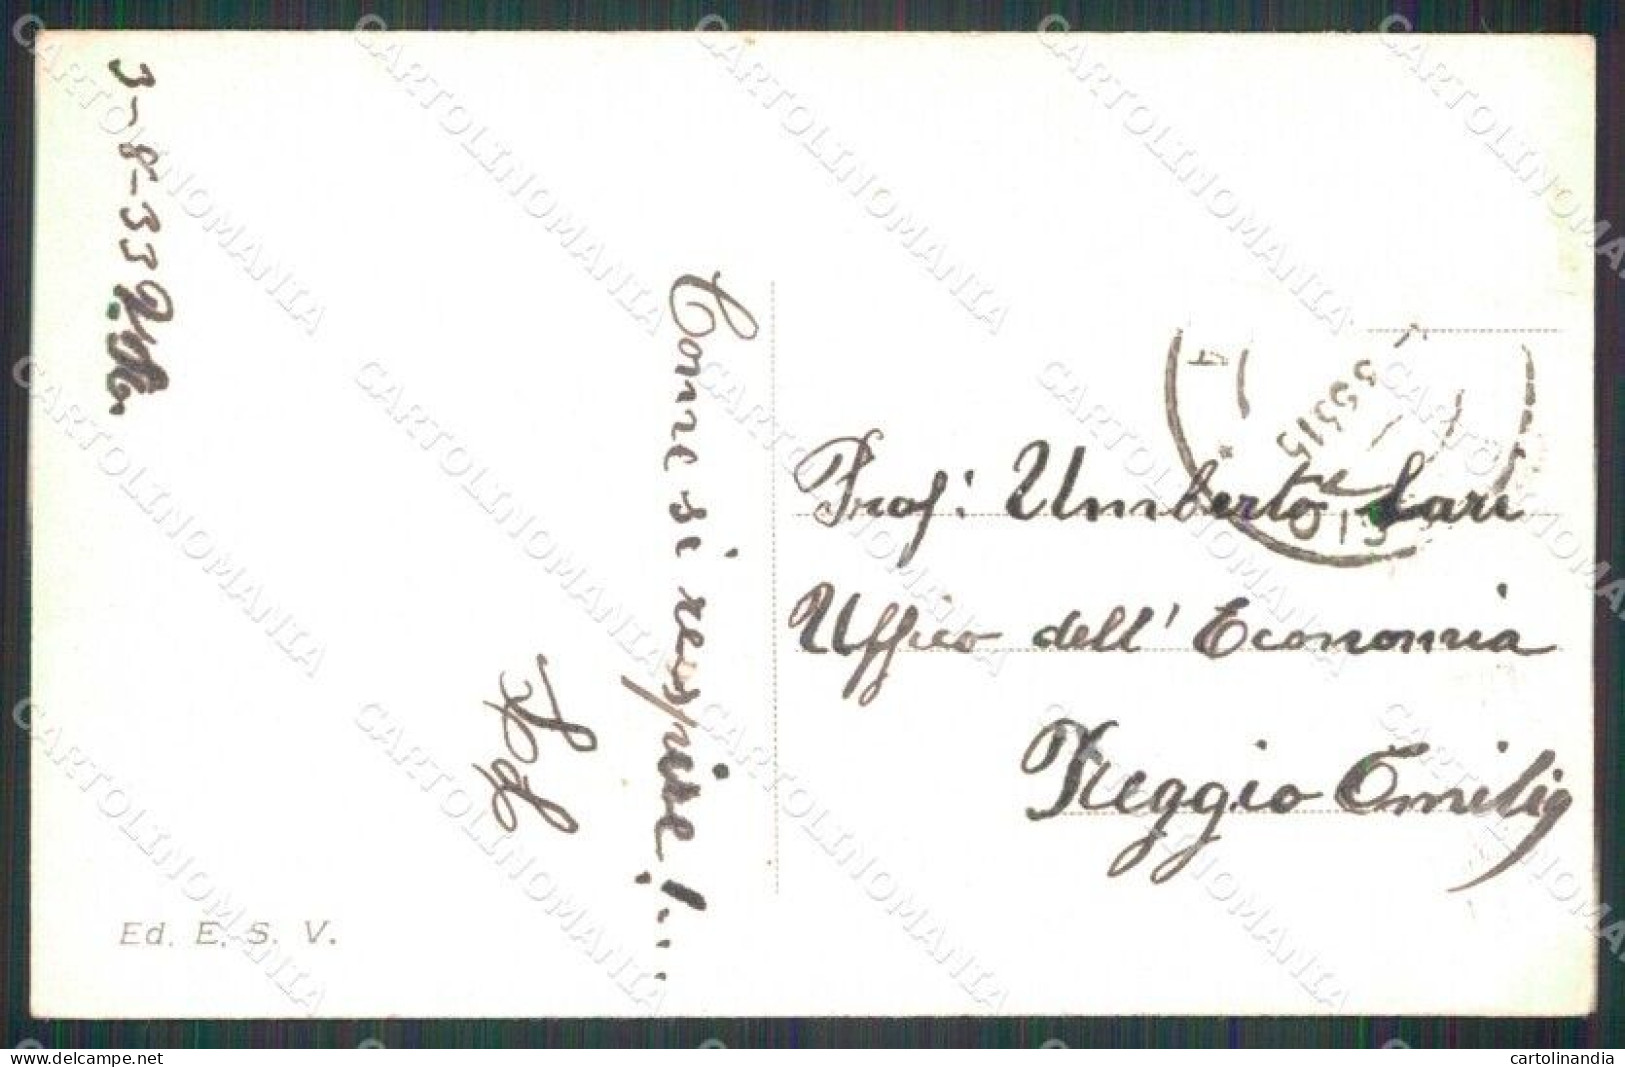 3-8-35
Come si respire!...
Prof: Umberto Lari
Uffico dell' Economia
Reggio Emilia
Ed. E. S. V.
CARTOLINOMANIA
www.delcampe.net
cartolinandia